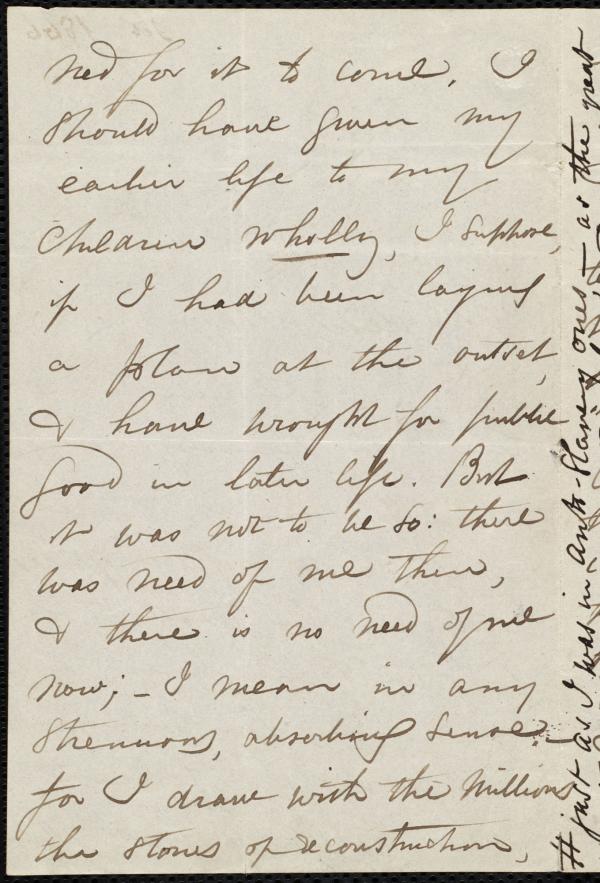 ned for it to come. I
should have given my
earlier life to my
children wholly, I suppose,
if I had been laying
a plan at the outset,
& have wrought for public
good in later life. But
it was not to be so: there
was need of me then,
& there is no need of me
now; – I mean in any
strenuous, absorbing sense.
for I draw with the millions
the stones of reconstruction,
# just as I was in Anti-Slavery ones – as the great